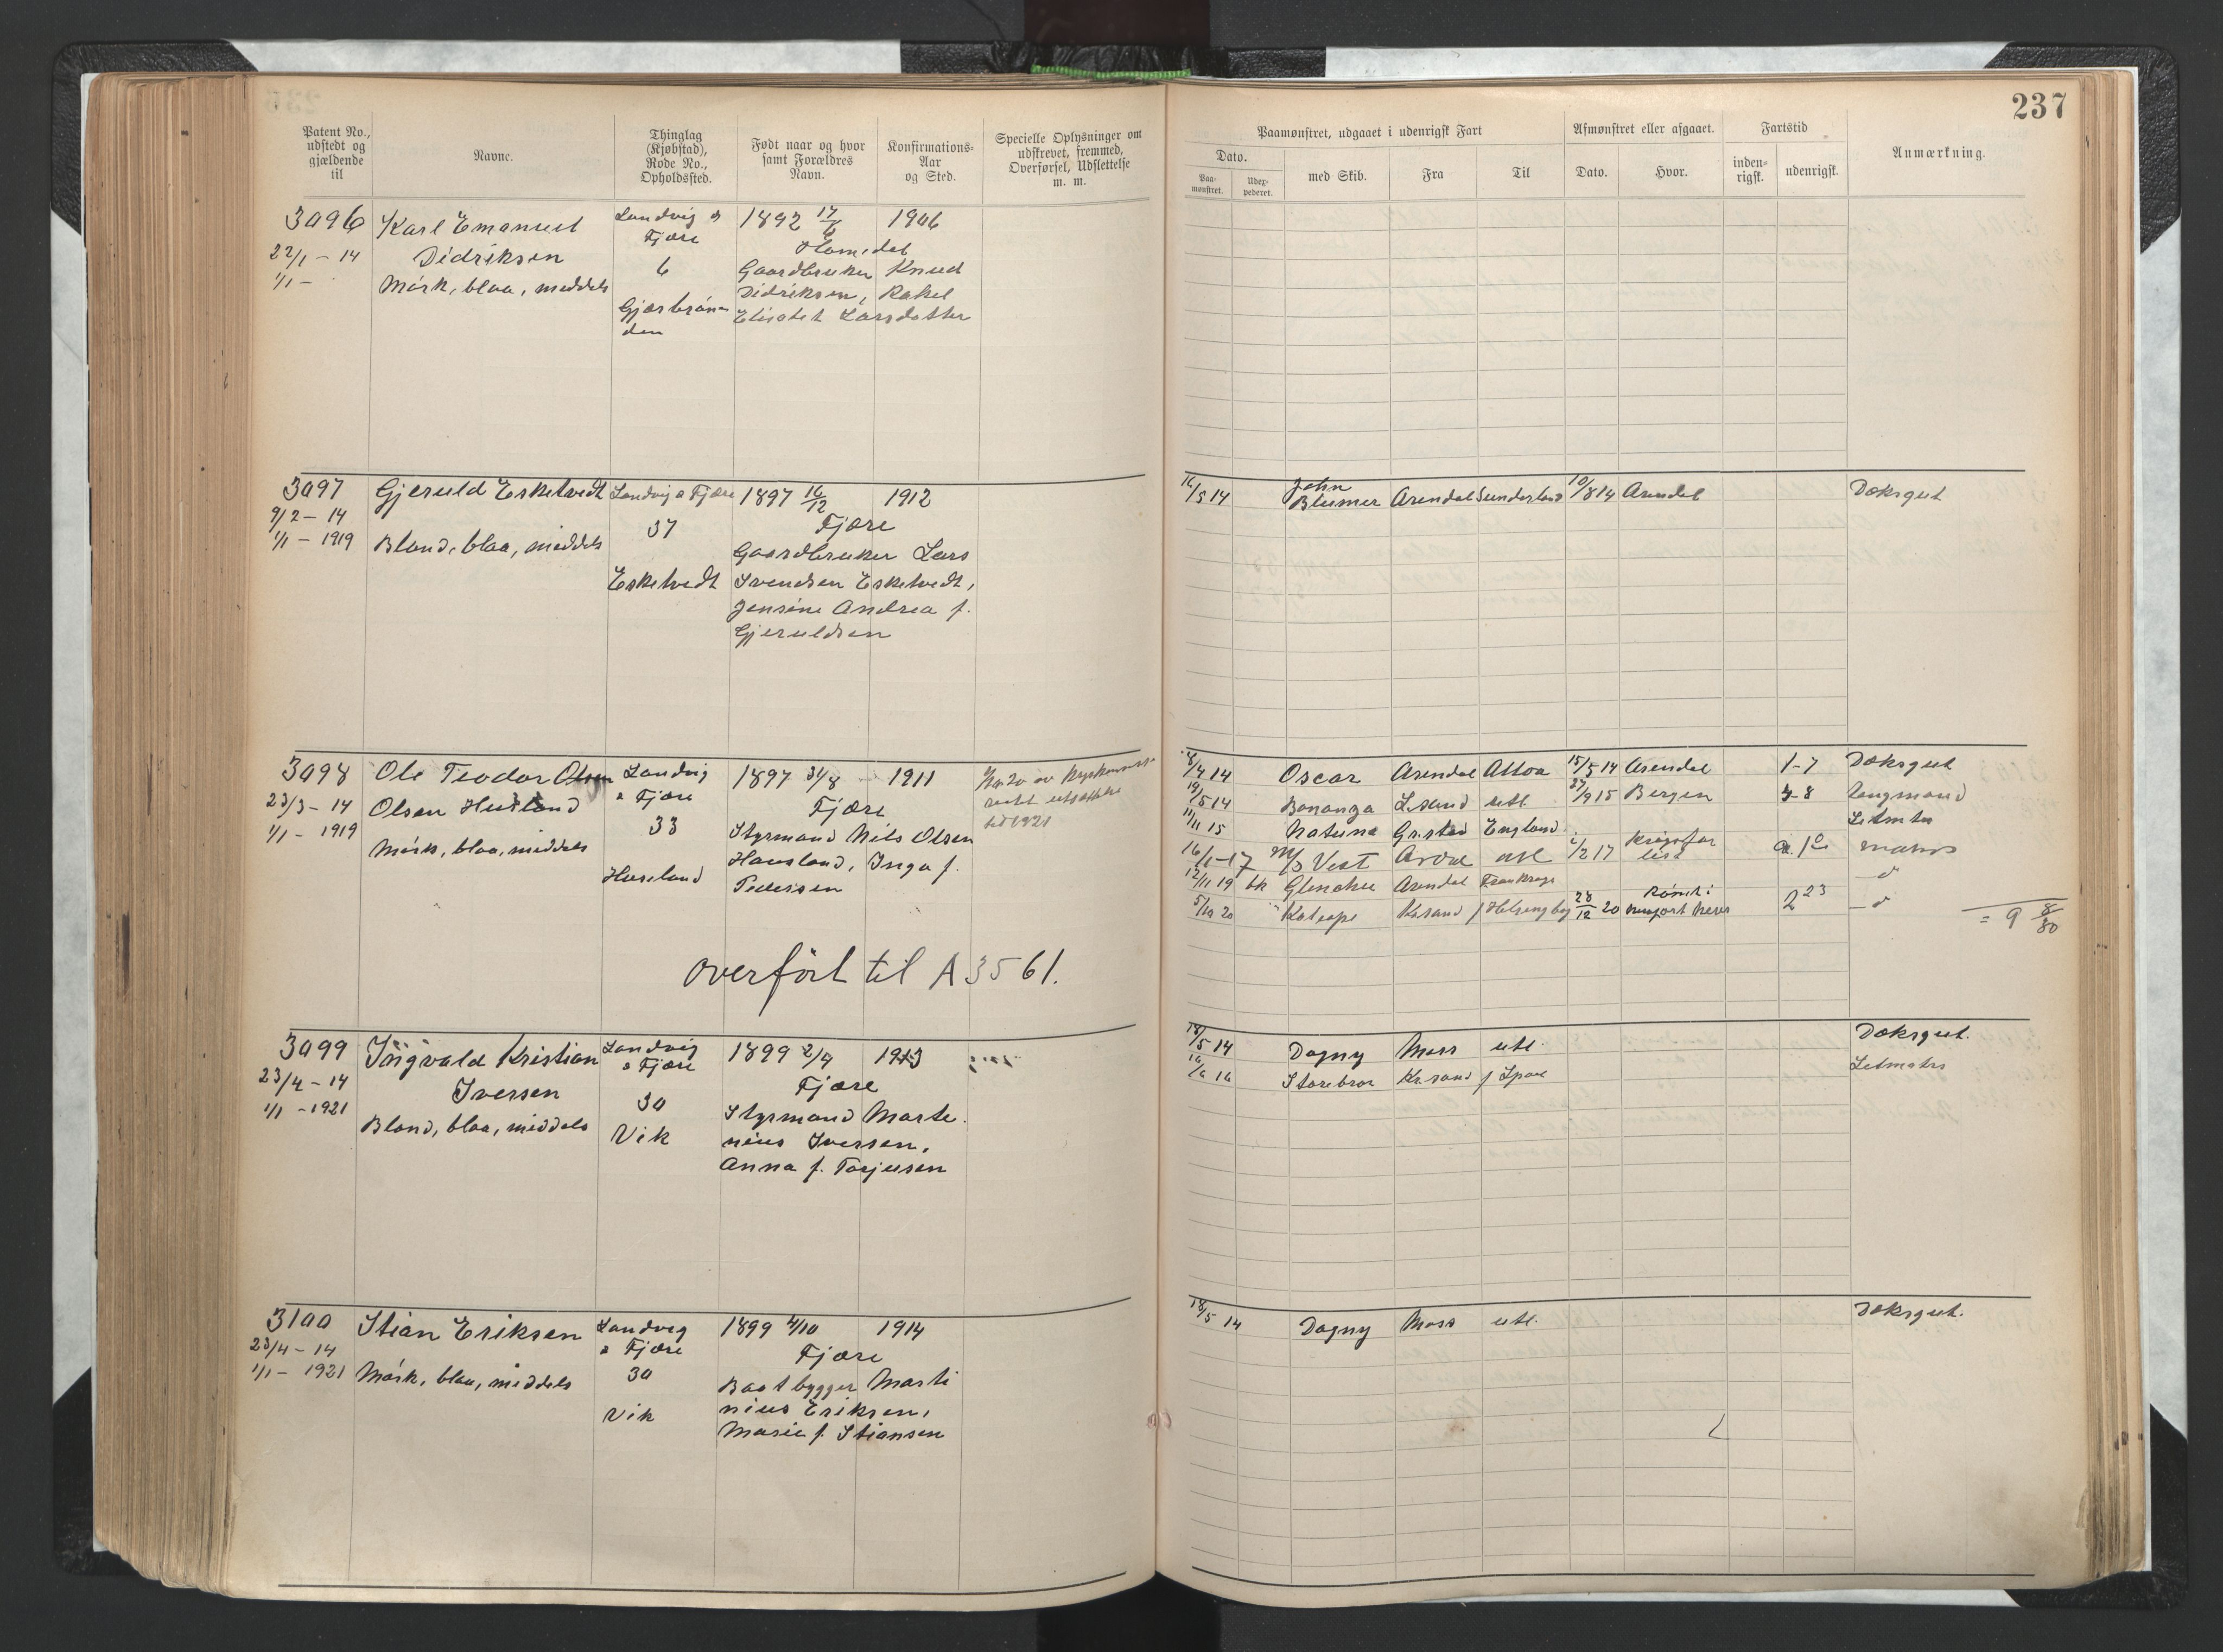 237
Patent No., udstedt og gjældende til
Navne.
Thinglag (Kjøbstad), Rode No., Opholdssted.
Født naar og hvor samt Forældres Navn.
Konfirmations-Aar og Sted.
Specielle Oplysninger om udskrevet, fremmed, Overførsel, Udslettelse m. m.
Paamønstret, udgaaet i udenrigsk Fart
Dato.
Paa-mønstret.
Udex-pederet.
med Skib.
Fra
Til
Afmønstret eller afgaaet.
Dato.
Hvor.
Fartstid
inden-rigsk.
udenrigsk.
Anmærkning.
3096 Karl Emanuel Landvig & 1892 17/6 1906
22/1 - 14 Didriksen Fjære Homedal
1/1 - Mörk, blaa, middels 6 Gaardbruker Knud
Didriksen, Rakel
Elisabet Larsdatter
3097 Gjeruld Eskelvedt Landvig & Fjære 1897 16/12 1912
9/2 - 14 37 Fjære
1/1 - 1919 Blond, blaa, middels Gaardbruker Lars
Eskelvedt Svendsen Eskelvedt,
Jensine Andrea f.
Gjeruldsen
16/5 14 John Blumer Arendal Sunderland 10/8 14 Arendal Doksgut
3098 Ole Teodor Olsen Landvig 1897 31/8 1911
23/3 - 14 Olsen Husland & Fjære Fjære
1/1 - 1919 33 Styrmand Nils Olsen
Mörk, blaa, middels Hausland, Inga f.
Haseland Pedersen
8/4 14 Oscar Arendal Alloa 15/5 14 Arendal 1-7 Doksgut
19/5 14 Bananza utl 27/9 15 Bergen 7-8 Ungmand
11/11 15 Natuna Gr.stad England Letmtr
16/1-17 M/S Vest utl 2/2 17 Krigsforlist matros
12/11 19 bk Glenalvu Arendal Frankrige
5/10 20 Krsand f Helsingborg 28/12 20 2 23
= 9 8/30
overfört til A 3561.
3099 Ingvald Kristian Landvig 1899 2/4 1913
23/4 - 14 Iversen & Fjære Fjære
1/1 - 1921 30 Styrmand Marte
Blond, blaa, middels Vik nius Iversen,
Anna f. Torjusen
18/5 14 Dagny Moss utl. Doksgut.
16/6 16 Storebror Krsand f Letmatrs
3100 Stian Eriksen Landvig 1899 4/10 1914
23/4 - 14 & Fjære Fjære
1/1 - 1921 Mörk, blaa, middels 30 Baatbygger Marti
Vik nius Eriksen,
Marie f. Stiansen
18/5 14 Dagny Moss utl. Doksgut.